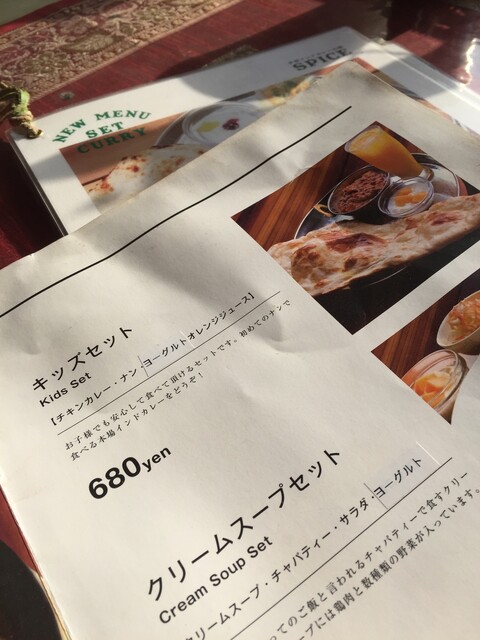 NEW MENU
SET
CURRY
SPICE
キッズセット
Kids Set
【チキンカレー・ナン・ヨーグルトオレンジジュース】
お子様でも安心して食べて頂けるセットです。初めてのナンで
食べる本場インドカレーをどうぞ！
680yen
クリームスープセット
Cream Soup Set
クリームスープ・チャパティー・サラダ・ヨーグルト
ってのご飯と言われるチャパティーで食すクリー
ープには鶏肉と数種類の野菜が入っています。